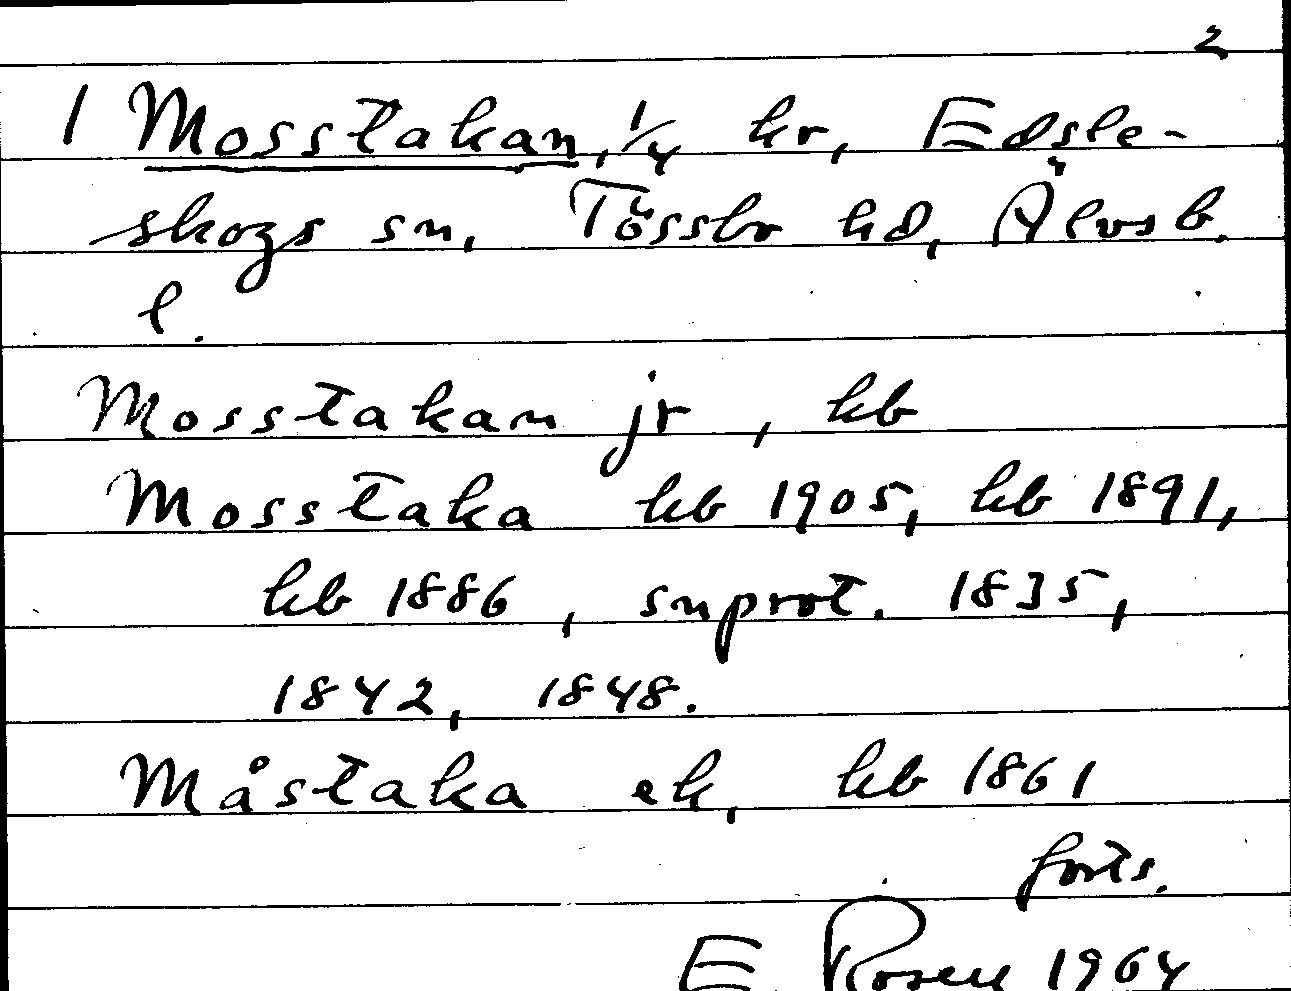 2
1 Mosstakan, 1/4 kr, Edsle-
skogs sn, Tössbo hd, Älvsb.
l.
Mosstakan jr, kb
Mosstaka kb 1905, kb 1891,
kb 1886, snprot. 1835,
1842, 1848.
Måstaka ek, kb 1861
forts.
E Rosen 1964